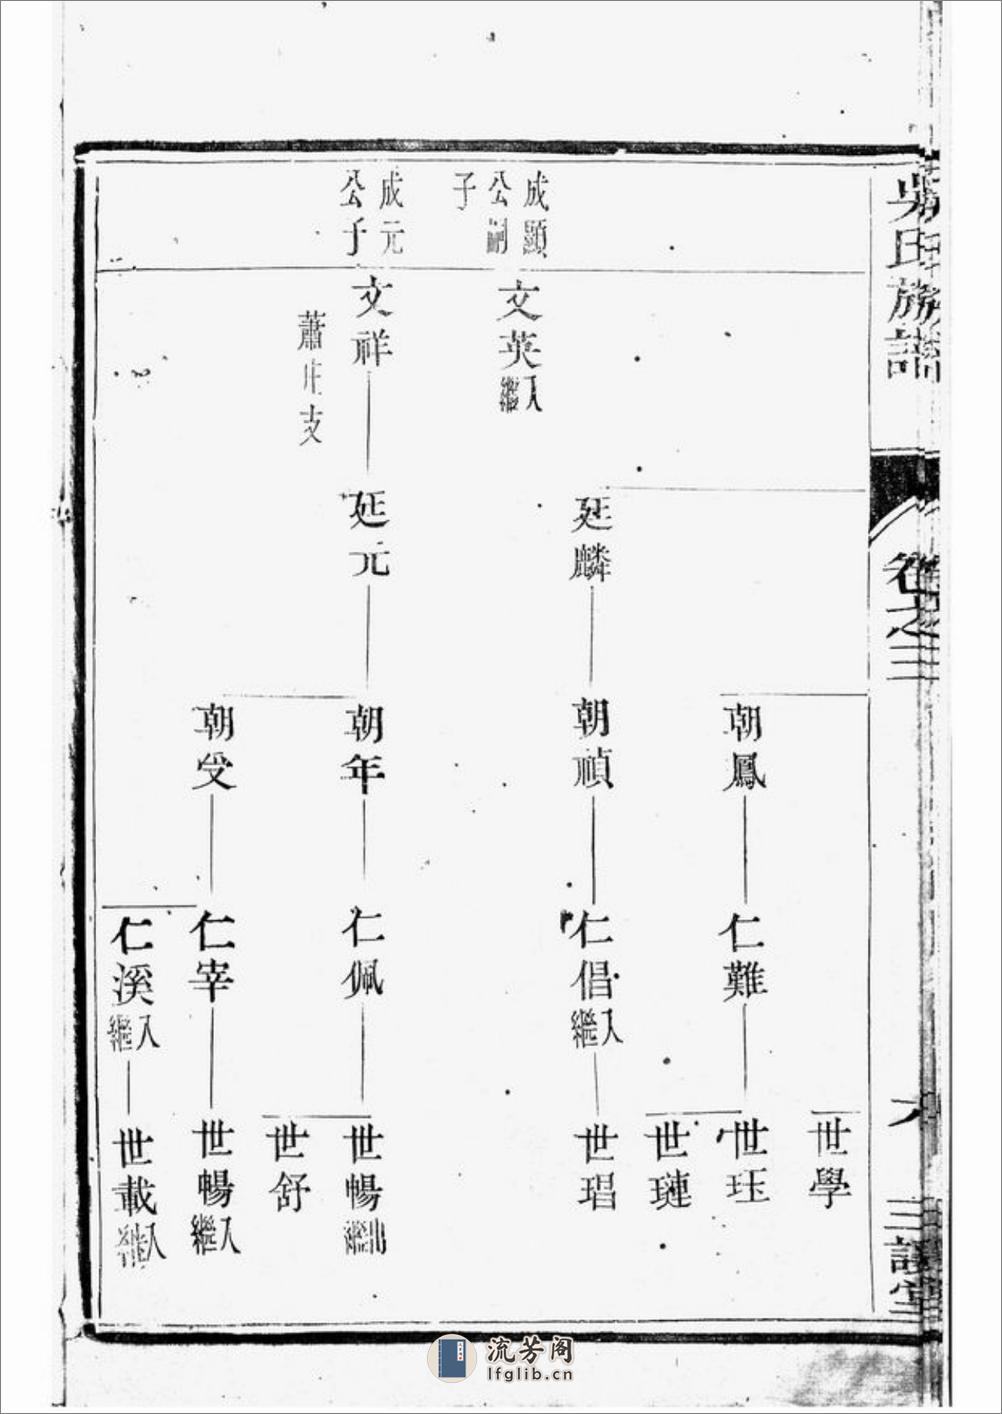 吳氏族譜
卷之三
六
三讓堂
世學
朝鳳
仁難
世珏
世璉
延麟
朝禎
仁倡入繼
世琩
成顯公嗣子
文英入繼
成元公子
文祥
蕭庄支
延元
朝年
仁佩
世暢出繼
世舒
朝受
仁宰
世暢入繼
仁溪入繼
世載入繼
流芳阁
lfglib.cn